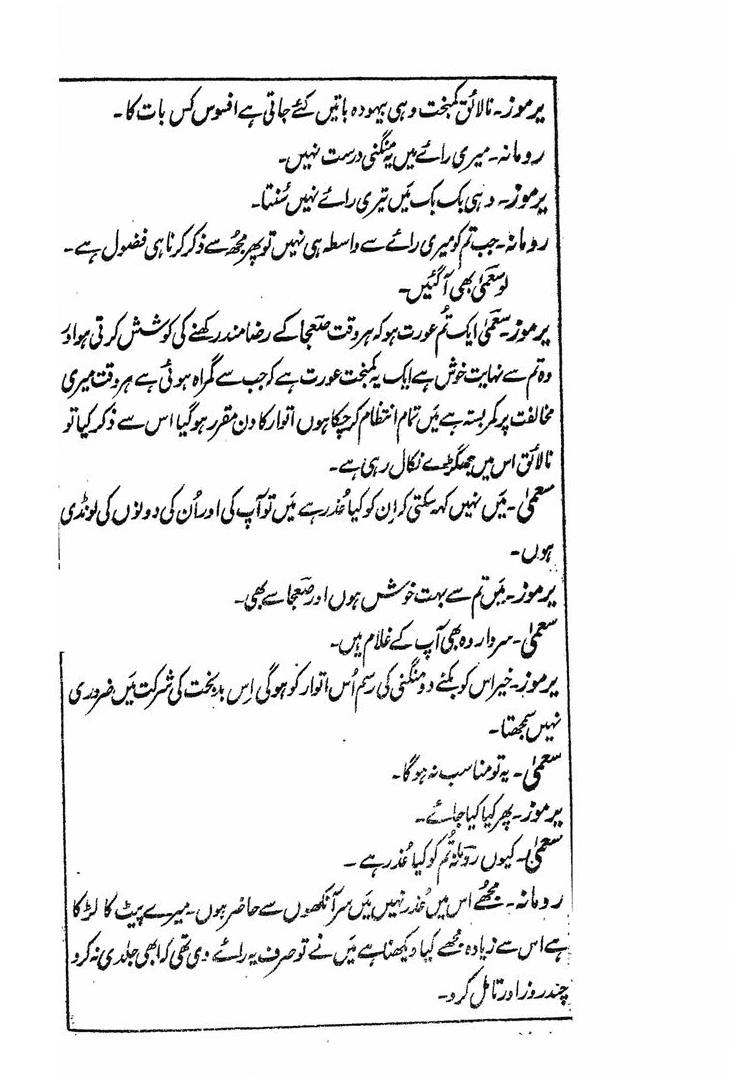 یرموز۔ نالائق کمبخت وہی بیہودہ باتیں کئے جاتی ہے افسوس کس بات کا۔
رومانہ۔ میری رائے میں یہ منگنی درست نہیں۔
یرموز۔ وہی بک بک میں تیری رائے نہیں سُنتا۔
رومانہ۔ جب تم کو میری رائے سے واسطہ ہی نہیں تو پھر مجھ سے ذکر کرنا ہی فضول ہے۔
لو سعمیٰ بھی آ گئیں۔
یرموز۔ سعمیٰ ایک تُم عورت ہو کہ ہر وقت صعجا کے رضامند رکھنے کی کوشش کرتی ہو اور
وہ تم سے نہایت خوش ہے ایک یہ کمبخت عورت ہے کہ جب سے گمراہ ہوئی ہے ہر وقت میری
مخالفت پر کمربستہ ہے میں تمام انتظام کر چکا ہوں اتوار کا دن مقرر ہو گیا اس سے ذکر کیا تو
نالائق اس میں جھگڑے نکال رہی ہے۔
سعمیٰ۔ میں نہیں کہہ سکتی کہ اِن کو کیا عُذر ہے میں تو آپ کی اور اُن کی دونوں کی لونڈی
ہوں۔
یرموز۔ میں تم سے بہت خوش ہوں اور صعجا سے بھی۔
سعمیٰ۔ سردار وہ بھی آپ کے غلام ہیں۔
یرموز۔ خیر اس کو بکنے دو منگنی کی رسم اُس اتوار کو ہوگی اِس بدبخت کی شرکت میں ضروری
نہیں سمجھتا۔
سعمیٰ۔ یہ تو مناسب نہ ہو گا۔
یرموز۔ پھر کیا کیا جائے۔
سعمیٰ۔ کیوں رومانہ تُم کو کیا عُذر ہے۔
رومانہ۔ مجھے اس میں عُذر نہیں میں سر آنکھوں سے حاضر ہوں۔ میرے پیٹ کا لڑکا
ہے اس سے زیادہ مجھے کیا دیکھنا ہے میں نے تو صرف یہ رائے دی تھی کہ ابھی جلدی نہ کرو
چند روز اور تامل کرو۔